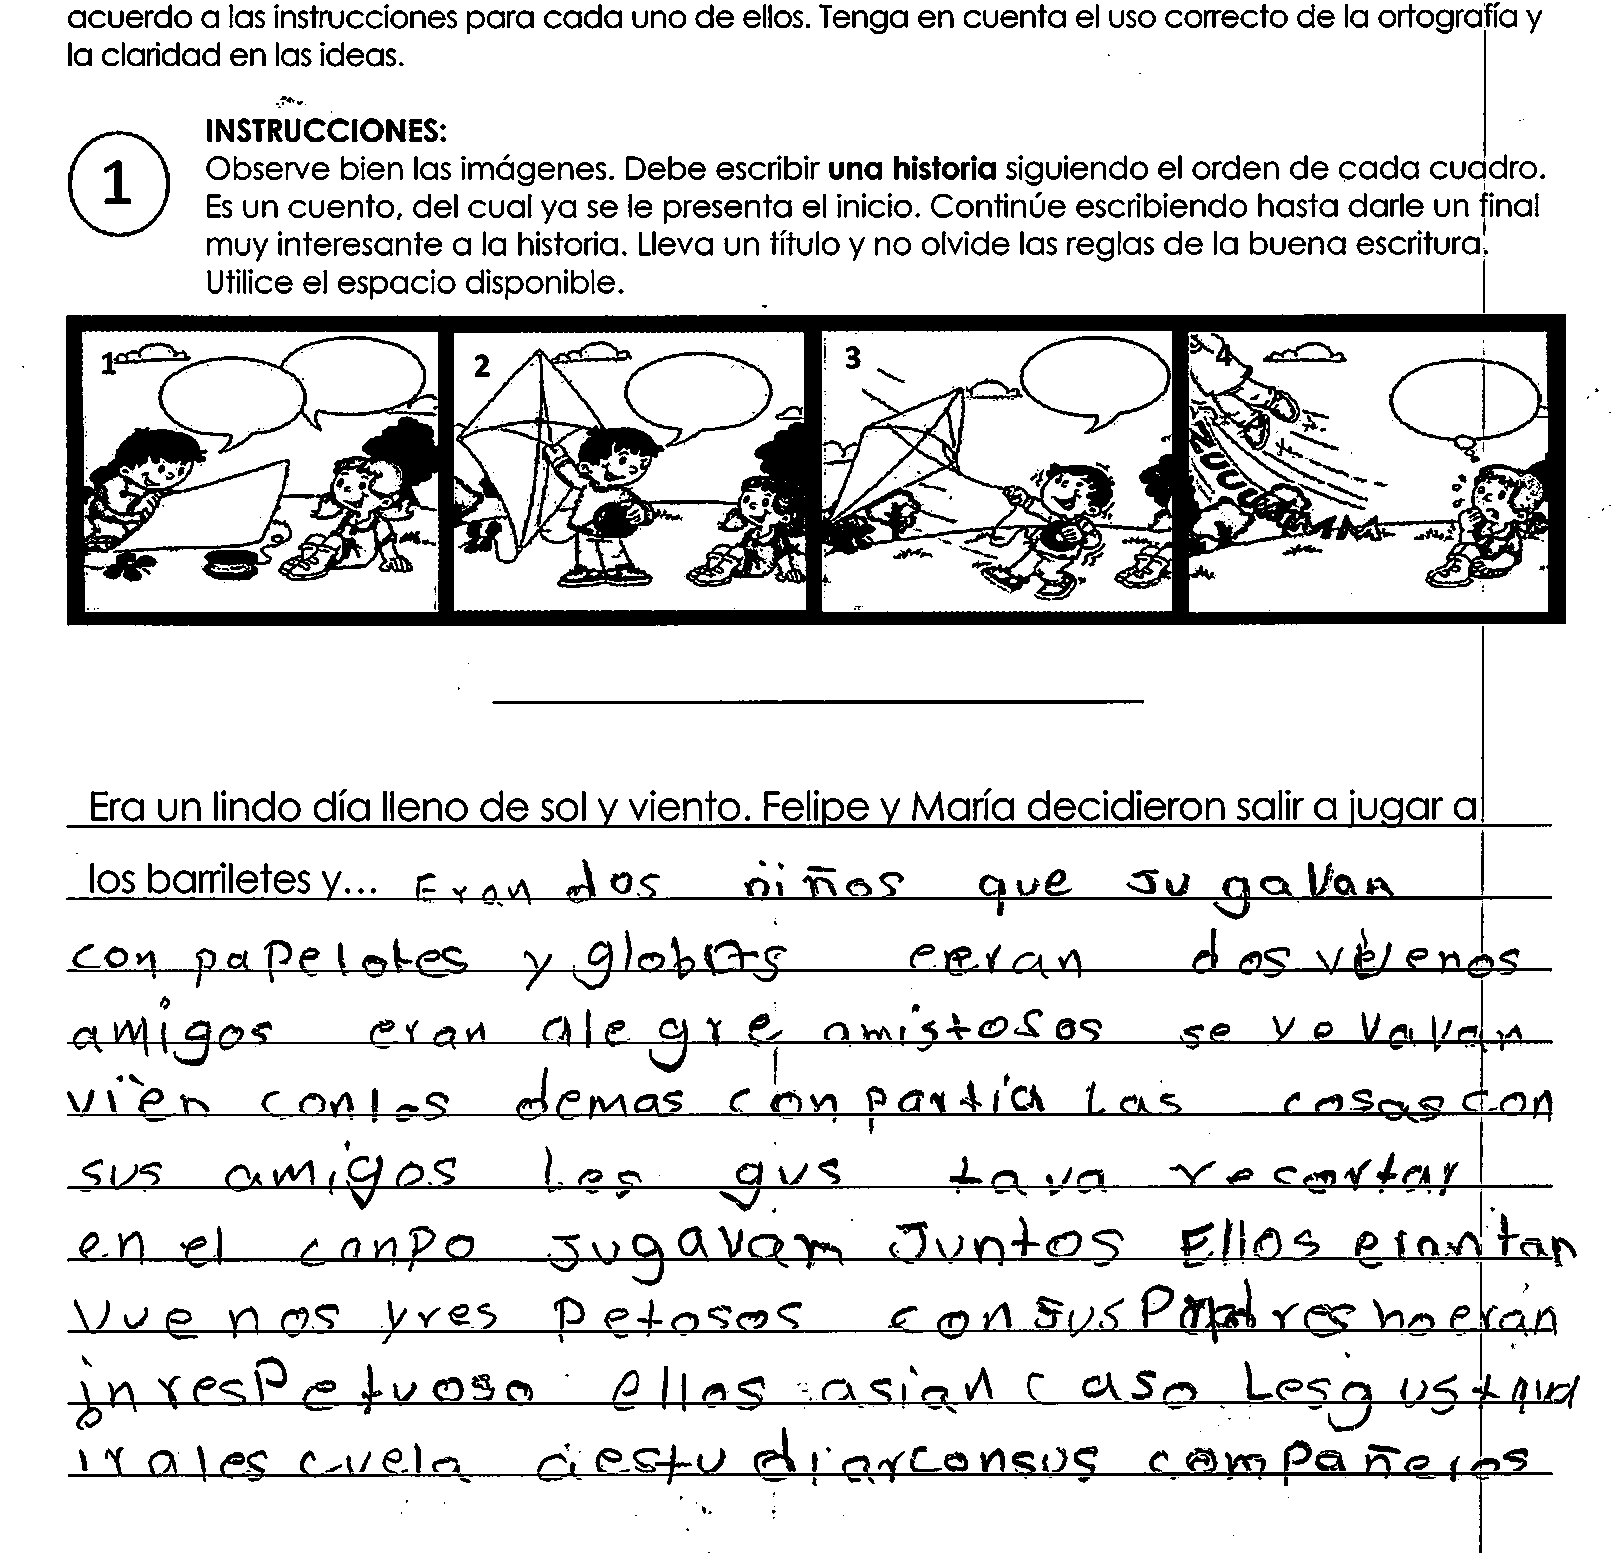 acuerdo a las instrucciones para cada uno de ellos. Tenga en cuenta el uso correcto de la ortografía y
la claridad en las ideas.
1
INSTRUCCIONES:
Observe bien las imágenes. Debe escribir una historia siguiendo el orden de cada cuadro.
Es un cuento, del cual ya se le presenta el inicio. Continúe escribiendo hasta darle un final
muy interesante a la historia. Lleva un título y no olvide las reglas de la buena escritura.
Utilice el espacio disponible.
1 2 3 4
ZUUUUMMM
Era un lindo día lleno de sol y viento. Felipe y María decidieron salir a jugar a
los barriletes y... Eran dos niños que jugavan
con papelotes y globos eran dos vuenos
amigos eran alegre, amistosos se
vien con los demas conpartia las cosas con
sus amigos les gus tava recortar
en el canpo jugavam juntos Ellos eran tan
vuenos y res petosos con sus Padres no eran
inrespetuoso ellos asian caso Les gus
ir a les cuela a estu diar con sus compañeros